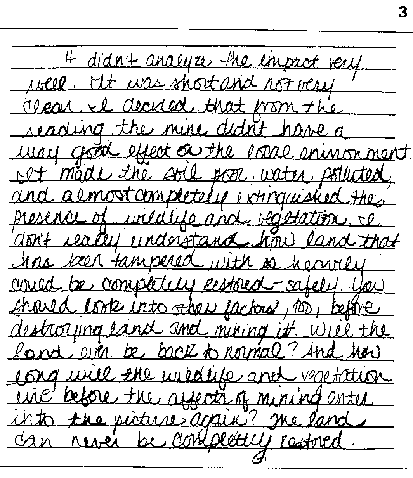 3
It didn't analyze the impact very
well. It was short and not very
clear. I decided that from the
reading the mine didn't have a
very good effect on the local enironment
It made the soil poor, water polluted,
and almost completely extinguished the
presence of wildlife and vegetation. I
don't really understand how land that
has been tampered with so heavily
could be completely restored - safely. You
should look into other factors, too, before
destroying land and mining it. Will the
land ever be back to normal? And how
long will the wildlife and vegetation
live before the affects of mining enter
into the picture again? The land
can never be completely restored.